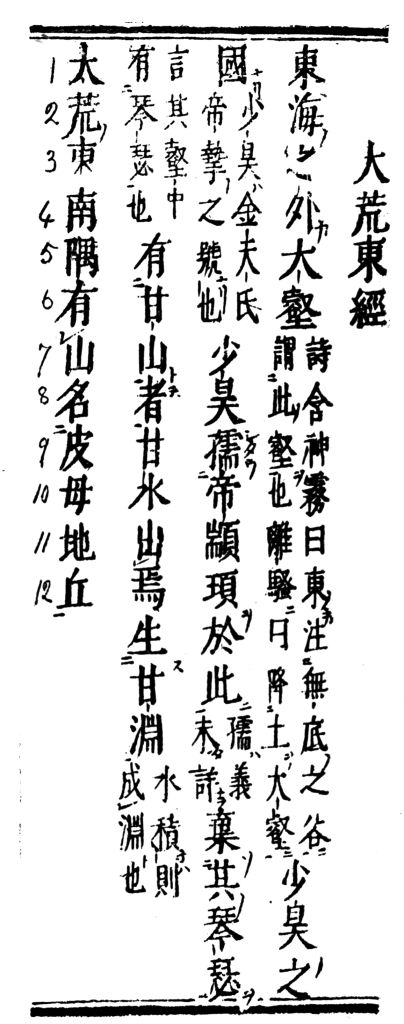 大荒東經
東海之外大壑
詩含神霧曰東注無底之谷
謂此壑也離騷曰降土大壑
少昊之
國
少昊金天氏
帝摯之號也
少昊孺帝顓頊於此
孺義
未詳
棄其琴瑟
言其壑中
有琴瑟也
有甘山者甘水出焉生甘淵
水積則
成淵也
大荒東南隅有山名皮母地丘
1 2 3 4 5 6 7 8 9 10 11 12